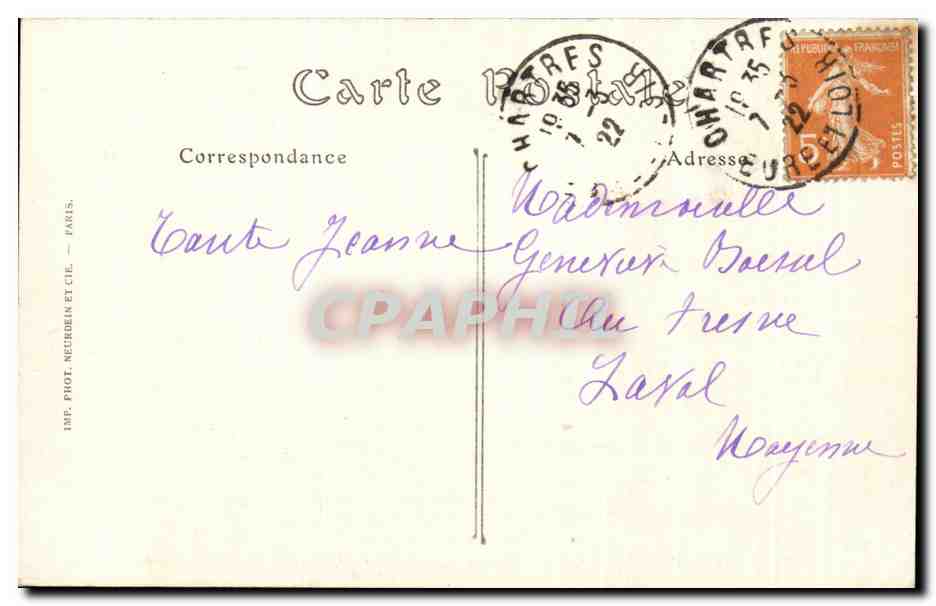 Carte Postale
Correspondance
Adresse
CHARTRES
19 35
7 - 3
22
CHARTRES
19 35
22
EURE ET LOIR
REPUBLIQUE FRANÇAISE
5
POSTES
Tante Jeanne
Mademoiselle
Geneviève
Au Fresne
Laval
Mayenne
IMP. PHOT. NEURDEIN ET CIE. — PARIS.
CPAPHIL